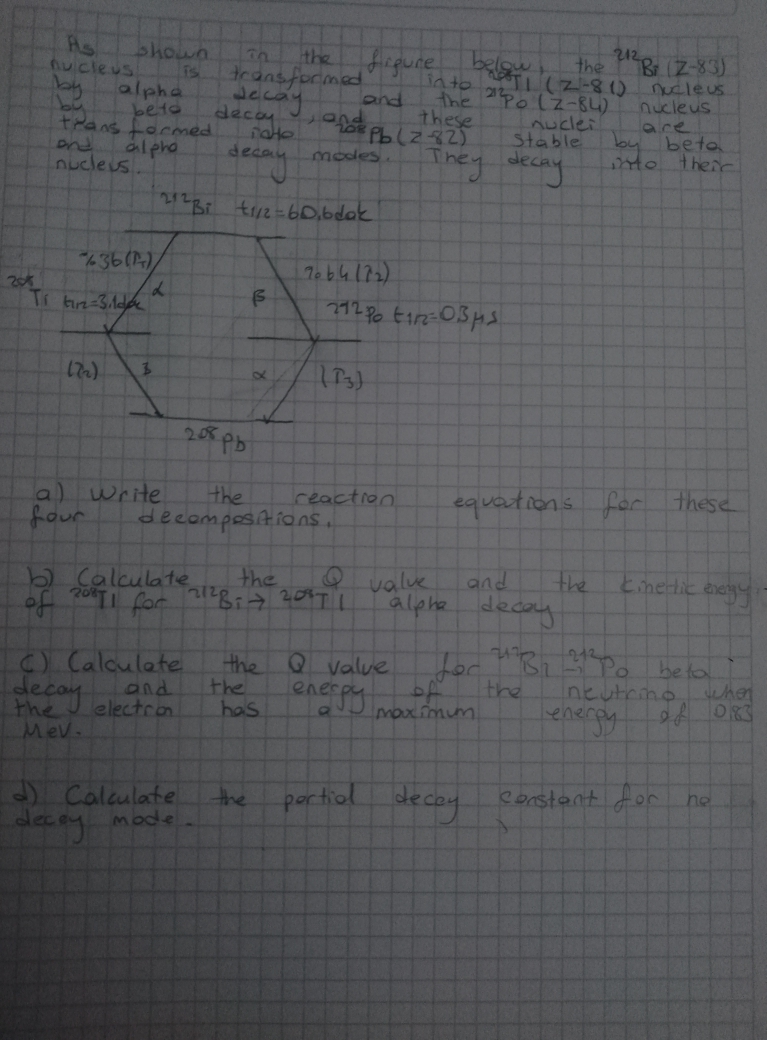 As shown in the figure below, the 212Bi (Z-83)
nucleus is transformed into 208Tl (Z-81) nucleus
by alpha decay and the 212Po (Z-84) nucleus
by beta decay, and these nuclei are
transformed into 208Pb (Z-82) stable by beta
and alpha decay modes. They decay into their
nucleus.
212Bi t1/2=60,6dak
%36(P1)
%64(P2)
208Tl t1/2=3,1dak
α
β
212Po t1/2=03μs
(P2)
β
α
(P3)
208Pb
a) Write the reaction equations for these
four decompositions.
b) Calculate the Q value and the kinetic energy
of 208Tl for 212Bi → 208Tl alpha decay
c) Calculate the Q value for 212Bi → 212Po beta
decay and the energy of the neutrino when
the electron has a maximum energy of 0,83
MeV.
d) Calculate the partial decay constant for no
decey mode.